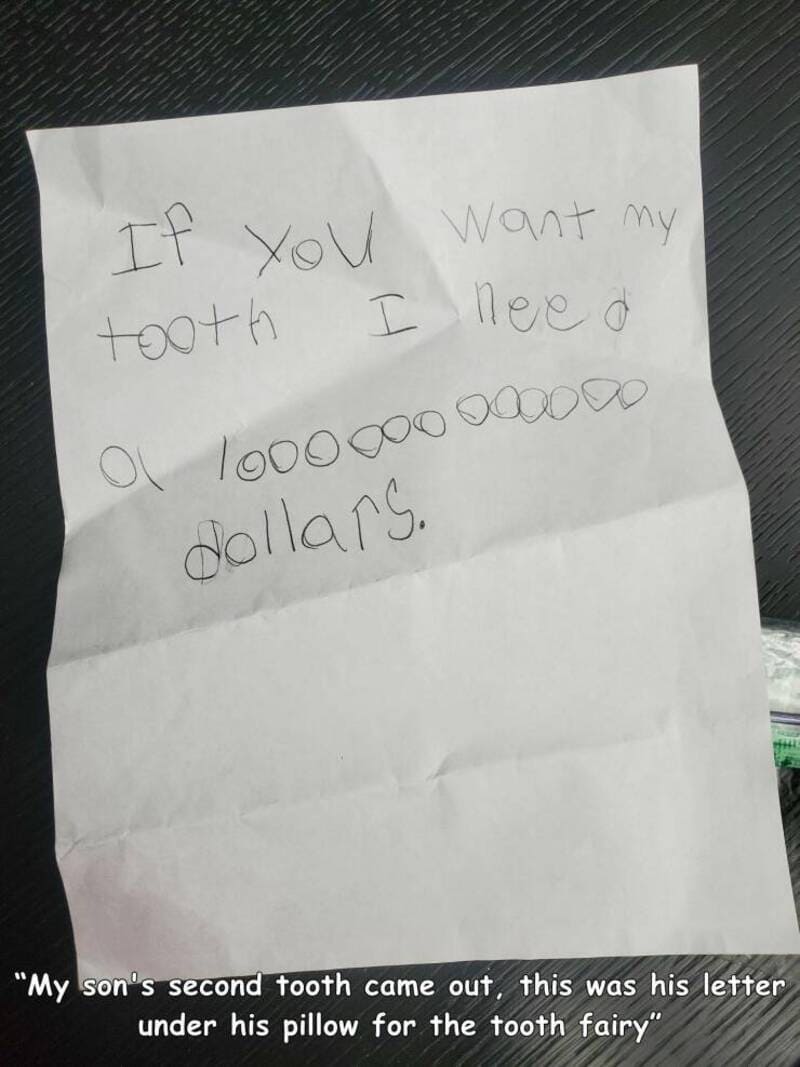 If you want my
tooth I need
a 1000000000000 dollars.
"My son's second tooth came out, this was his letter
under his pillow for the tooth fairy"